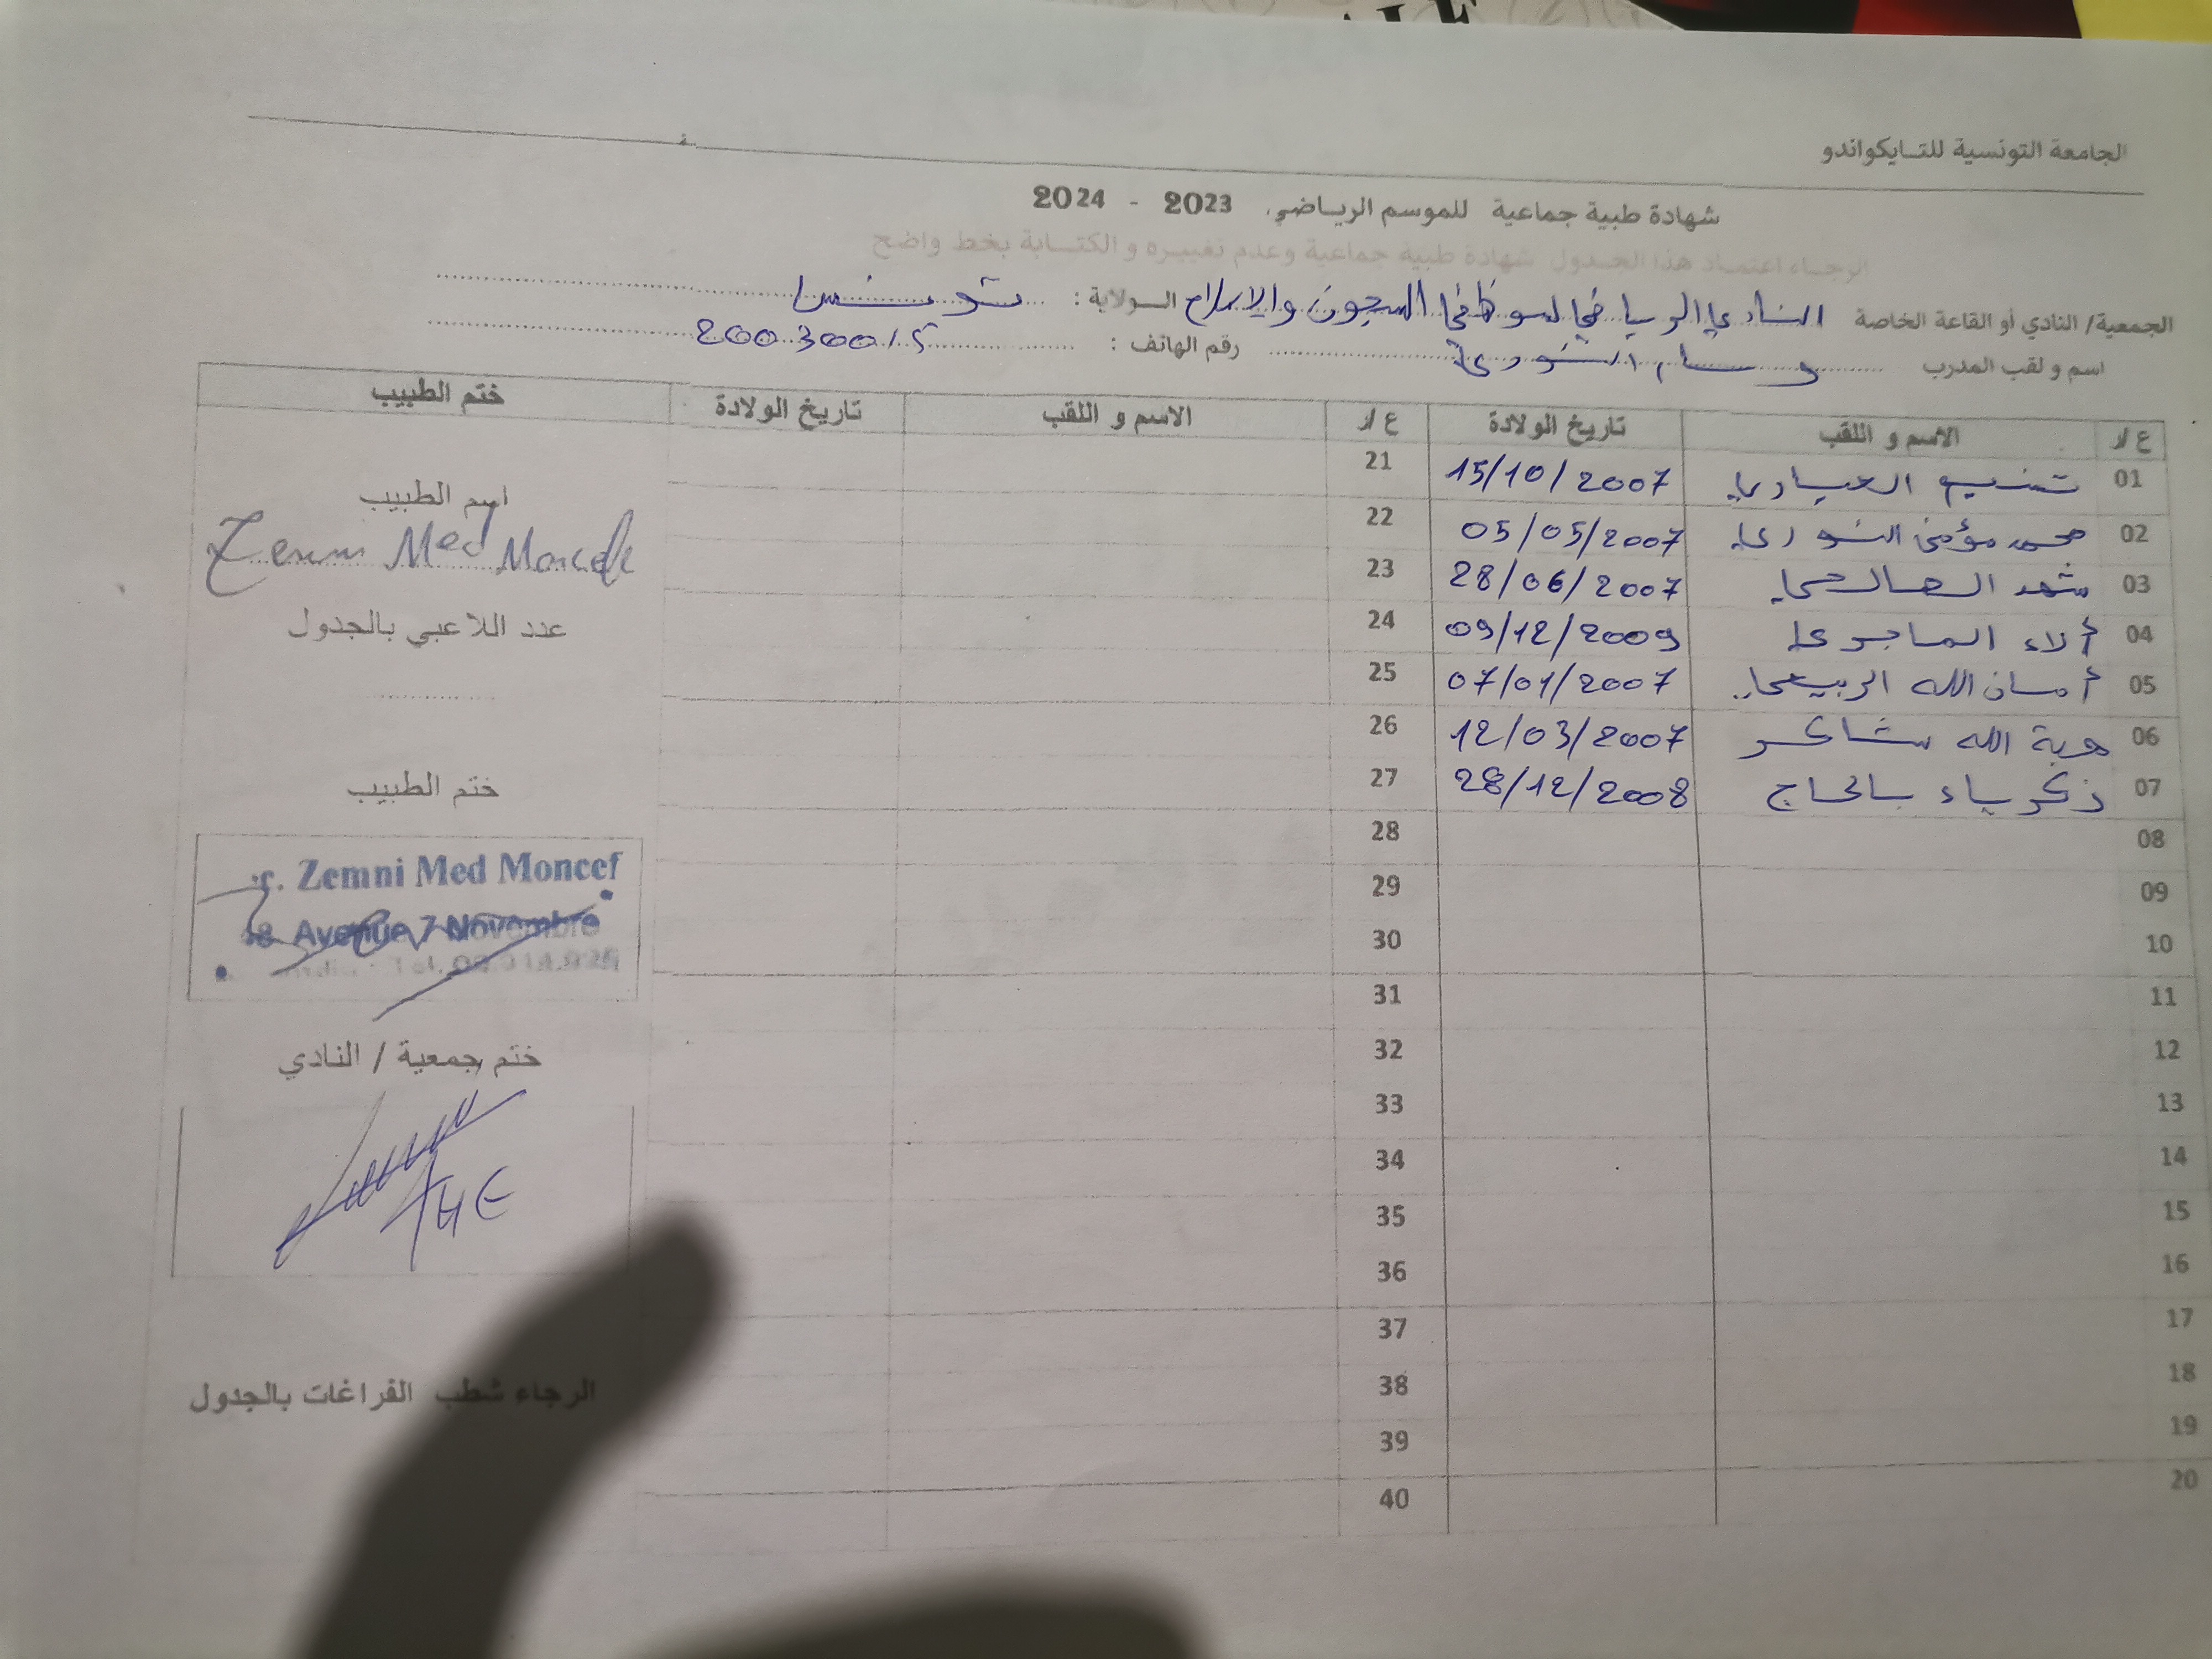 الجامعة التونسية للتايكواندو
شهادة طبية جماعية للموسم الرياضي 2023 - 2024
الرجاء اعتماد هذا الجدول شهادة طبية جماعية وعدم تغييره و الكتابة بخط واضح
الجمعية/ النادي أو القاعة الخاصة النادي الرياضي لموظفي السجون والإصلاح الولاية : تونس
اسم و لقب المدرب وسام النوري رقم الهاتف : 20030015
ع/ر الاسم و اللقب تاريخ الولادة ع/ر الاسم و اللقب تاريخ الولادة ختم الطبيب
01 تسنيم العيادي 15/10/2007 21
02 محمد مؤمن النوري 05/05/2007 22
03 شهد الصالحي 28/06/2007 23
04 ألاء الماجري 09/12/2009 24
05 أمان الله الربيعي 07/01/2007 25
06 هبة الله شاكر 12/03/2007 26
07 زكرياء بالحاج 28/12/2008 27
08 28
09 29
10 30
11 31
12 32
13 33
14 34
15 35
16 36
17 37
18 38
19 39
20 40
اسم الطبيب
Zemni Med Moncef
عدد اللاعبي بالجدول
ختم الطبيب
Zemni Med Moncef
Avenue 7 Novembre
Tel.
ختم جمعية / النادي
الرجاء شطب الفراغات بالجدول